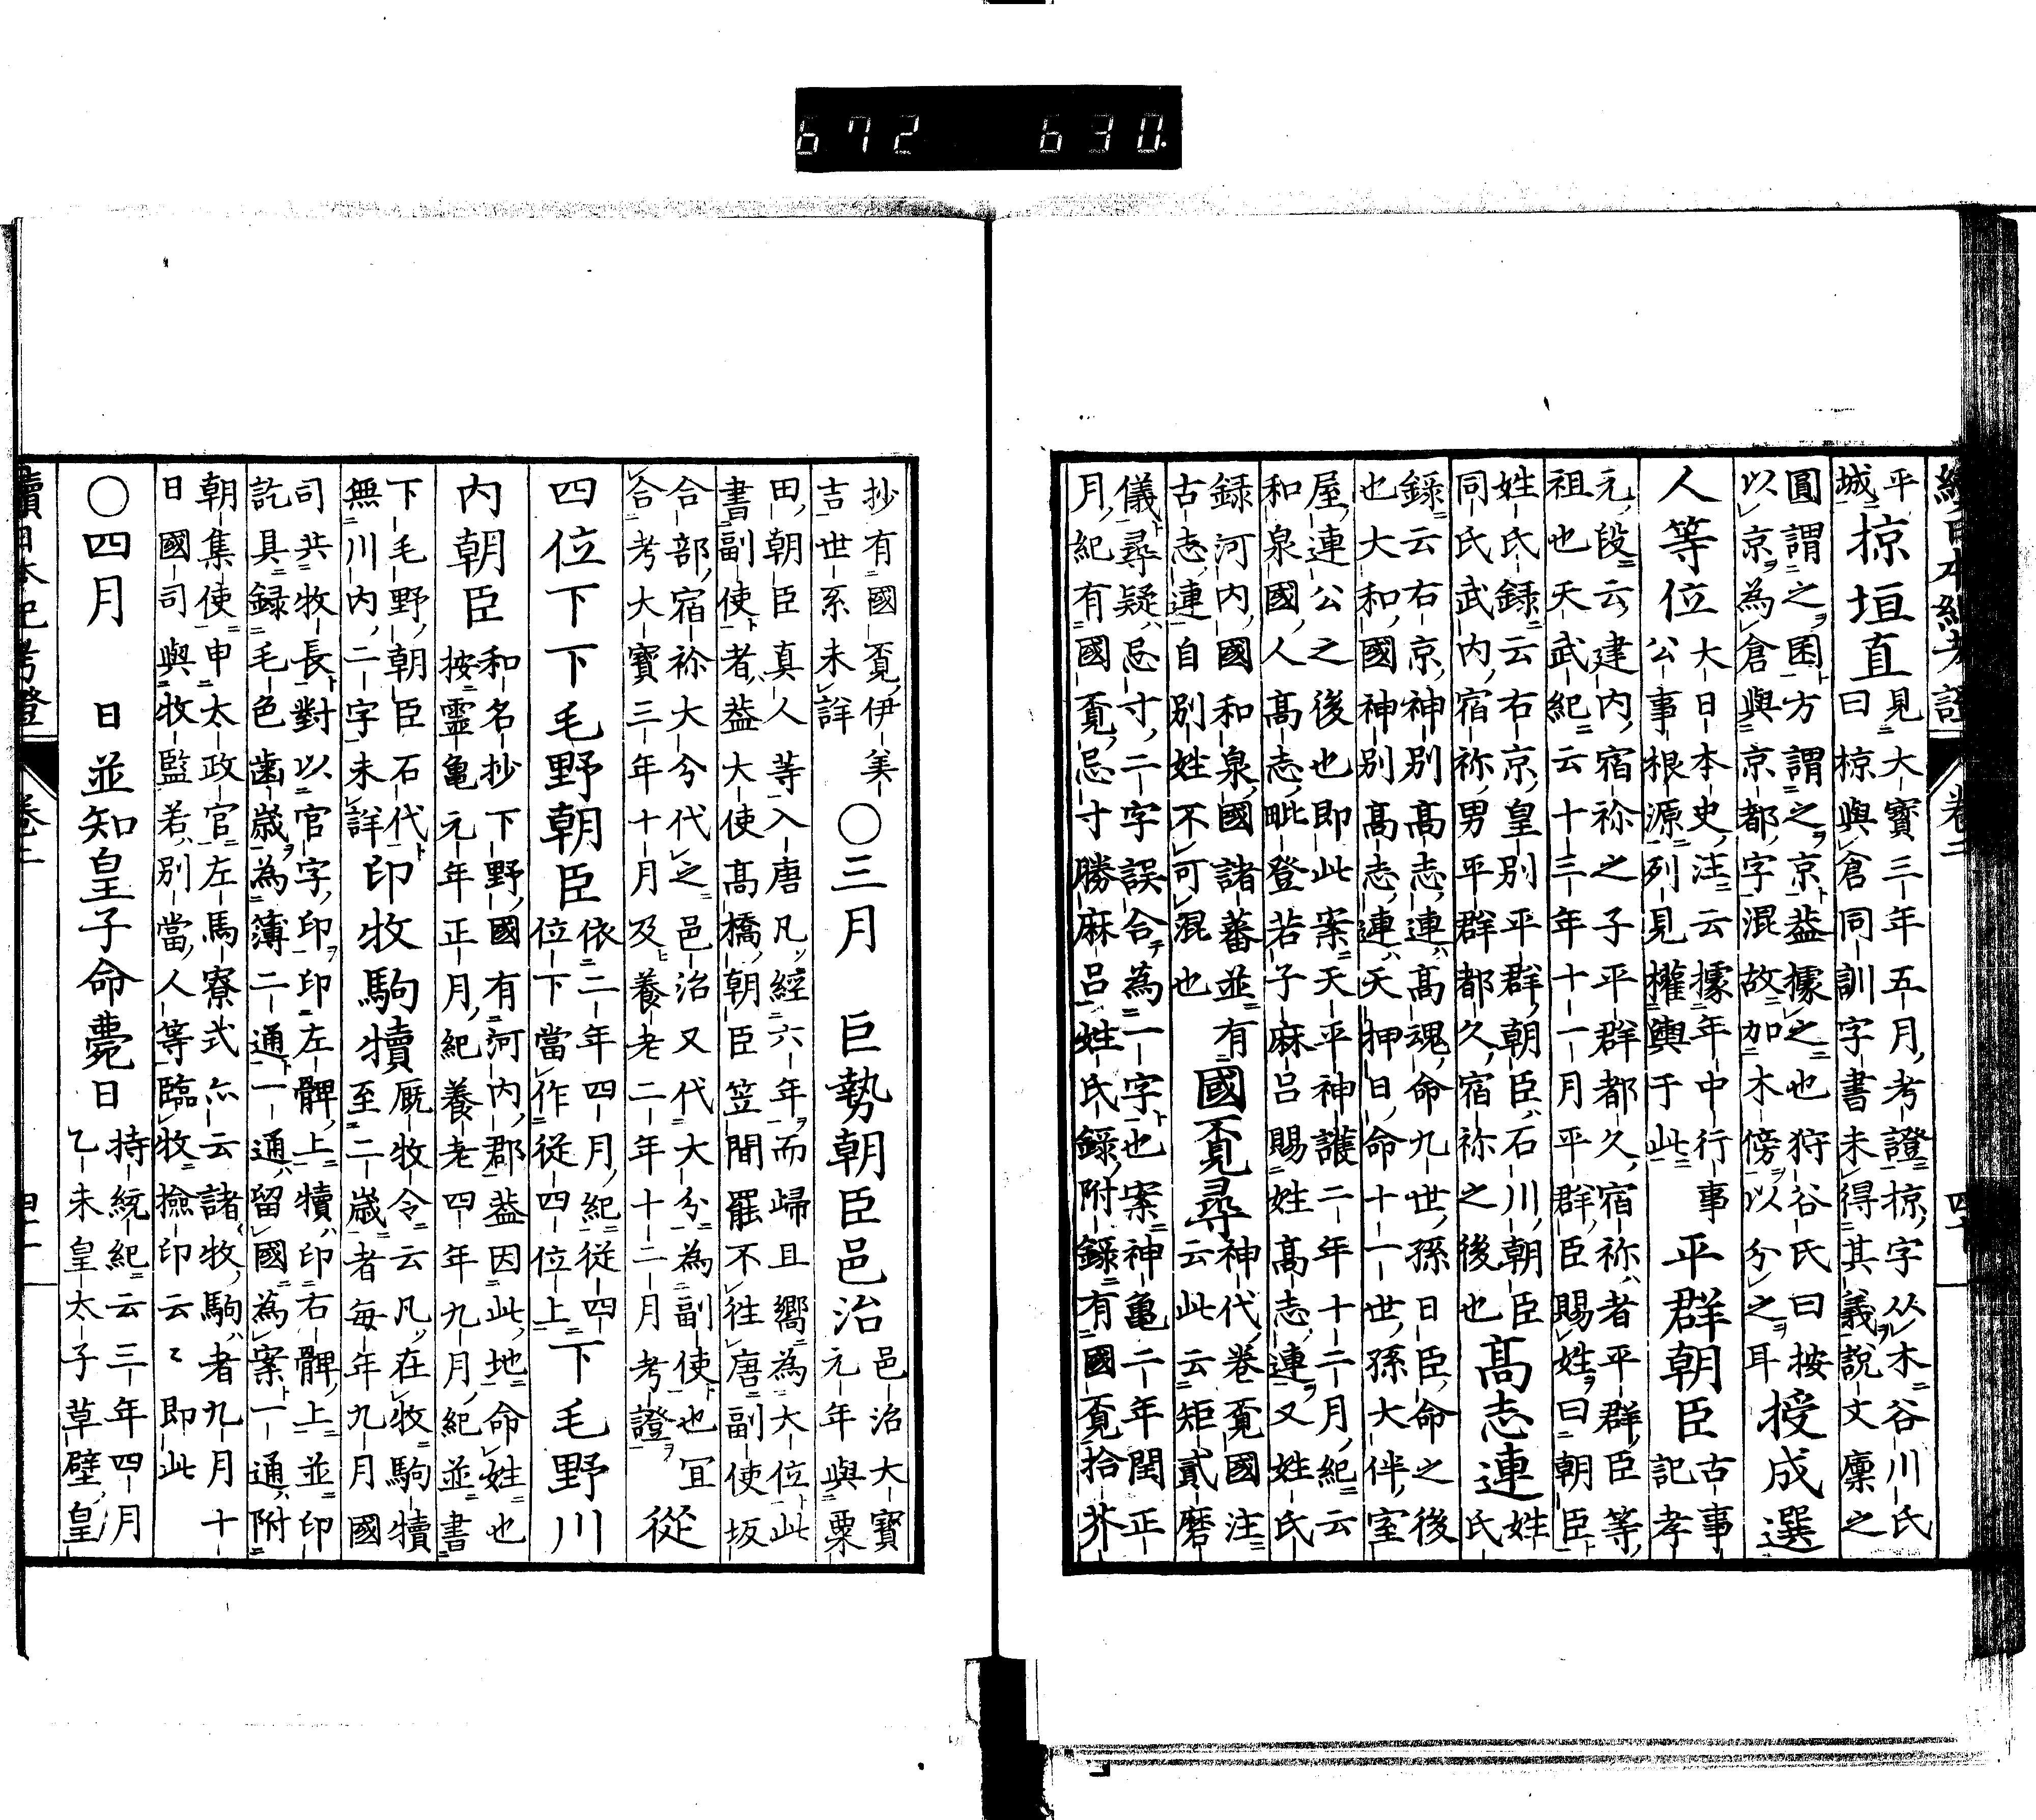 672 630.
續日本紀考證 卷二 四十
平
城 椋垣直 見大寶三年五月考證椋字从木谷川氏
曰椋與倉同訓字書未得其義說文廩之
圓謂之囷方謂之京葢據之也狩谷氏曰按
以京為倉與京都字混故加木傍以分之耳 授成選
人等位 大日本史注云據年中行事
公事根源列見權輿于此 平群朝臣 古事
記孝
元段云建內宿祢之子平群都久宿祢者平群臣等
祖也天武紀云十三年十一月平群臣賜姓曰朝臣
姓氏錄云右京皇別平群朝臣石川朝臣
同氏武內宿祢男平群都久宿祢之後也 高志連 姓
氏
錄云右京神別高志連高魂命九世孫日臣命之後
也大和國神別高志連天押日命十一世孫大伴室
屋連公之後也即此案天平神護二年十二月紀云
和泉國人高志毗登若子麻呂賜姓高志連又姓氏
錄河內國和泉國諸蕃並有
古志連自別姓不可混也 國覔尋 神代卷覔國注
云此云矩貳磨
儀尋疑忌寸二字誤合為一字也案神亀二年閏正
月紀有國覔忌寸勝麻呂姓氏錄附錄有國覔拾芥
抄有國覔伊美
吉世系未詳 ○三月 巨勢朝臣邑治 邑治大寶
元年與粟
田朝臣真人等入唐凡經六年而歸且嚮為大位此
書副使者葢大使高橋朝臣笠間罷不往唐副使坂
合部宿祢大分代之邑治又代大分為副使也冝
合考大寶三年十月及養老二年十二月考證 從
四位下下毛野朝臣 依二年四月紀從四
位下當作從四位上 下毛野川
內朝臣 和名抄下野國有河內郡葢因此地命姓也
按靈亀元年正月紀養老四年九月紀並書
下毛野朝臣石代
無川內二字未詳 印牧駒犢 厩牧令云凡在牧駒犢
至二歲者每年九月國
司共牧長對以官字印印左髀上犢印右髀上並印
訖具錄毛色齒歲為簿二通一通留國為案一通附
朝集使申太政官左馬寮式亦云諸牧駒者九月十
日國司與牧監若別當人等臨牧撿印云〻即此
○四月 日並知皇子命薨日 持統紀云三年四月
乙未皇太子草壁皇
續日本紀考證 卷二